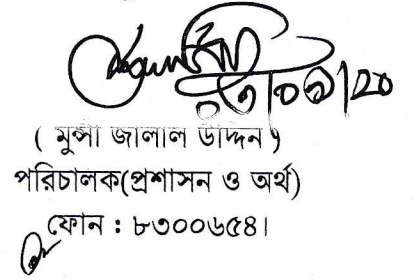 ( মুন্সী জালাল উদ্দিন )
পরিচালক(প্রশাসন ও অর্থ)
ফোন : ৮৩০০৬৫৪।